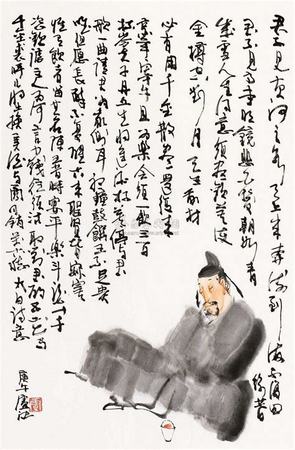 君不見黄河之水天上来奔流到海不復回
君不見高堂明鏡悲白髮朝如青絲暮
成雪人生得意須盡歡莫使
金樽空對月天生我材
必有用千金散盡還復来
烹羊宰牛且為樂會須一飲三百
杯岑夫子丹丘生將進酒杯莫停與君
歌一曲請君為我傾耳聽鐘鼓饌玉不足貴
但願長醉不復醒古来聖賢皆寂寞
惟有飲者留其名陳王昔時宴平樂斗酒十千
恣歡謔主人何為言少錢徑須沽取對君酌五花馬
千金裘呼兒將出換美酒與爾同銷萬古愁 太白詩意
庚午盧沉